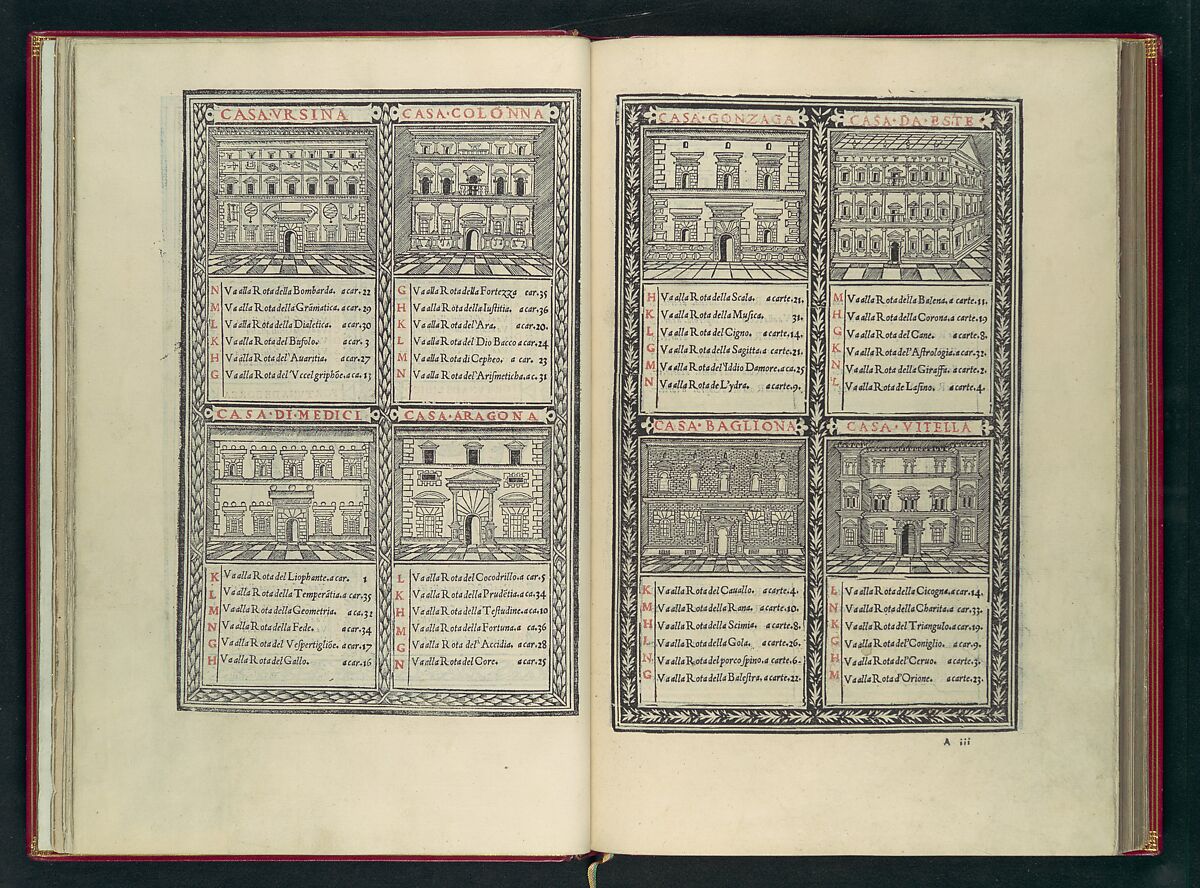 CASA·VRSINA
N Va alla Rota della Bombarda. a car. 22
M Va alla Rota della Grãmatica. a car. 29
L Va alla Rota della Dialetica. a car. 30
K Va alla Rota del Bufolo. a car. 3
H Va alla Rota del'Auaritia. a car. 27
G Va alla Rota del'Vccel griphõe. a ca. 13
CASA·COLONNA
G Va alla Rota della Fortezza car. 35
H Va alla Rota della Iustitia. a car. 36
K Va alla Rota del'Ara. a car. 20.
L Va alla Rota del Dio Bacco a car. 24
M Va alla Rota di Cepheo. a car. 23
N Va alla Rota del'Arismeticha. a c. 31
CASA·DI·MEDICI
K Va alla Rota del Liophante. a car. 1
L Va alla Rota della Temperãtia. a car. 35
M Va alla Rota della Geometria. a ca. 32
N Va alla Rota della Fede. a car. 34
G Va alla Rota del Vespertigliõe. a car. 17
H Va alla Rota del Gallo. a car. 16
CASA ARAGONA
L Va alla Rota del Cocodrillo. a car. 5
K Va alla Rota della Prudẽtia a ca. 34
H Va alla Rota della Testudine. a ca. 10
M Va alla Rota della Fortuna. a ca. 36
G Va alla Rota del'Accidia. a car. 28
N Va alla Rota del Core. a car. 25
CASA·GONZAGA
H Va alla Rota della Scala. a carte. 21.
K Va alla Rota della Musica. 31.
L Va alla Rota del Cigno. a carte. 14.
G Va alla Rota della Sagitta. a carte. 21.
M Va alla Rota del'Iddio Damore. a ca. 25
N Va alla Rota de L'ydra. a carte. 9.
CASA·DA·ESTE
M Va alla Rota della Balena. a carte. 11.
H Va alla Rota della Corona. a carte. 19
G Va alla Rota del Cane. a carte. 8.
K Va alla Rota del'Astrologia. a car. 32.
N Va alla Rota della Giraffa. a carte. 2.
L Va alla Rota de Lasino. a carte. 4.
CASA·BAGLIONA
K Va alla Rota del Cauallo. a carte. 4.
M Va alla Rota della Rana. a carte. 10.
H Va alla Rota della Scimia. a carte. 8.
L Va alla Rota della Gola. a carte. 26.
N Va alla Rota del porco spino. a carte. 6.
G Va alla Rota della Balestra. a carte. 22.
CASA·VITELLA
L Va alla Rota della Cicogna. a car. 14.
N Va alla Rota della Charita. a car. 33.
K Va alla Rota del Triangulo. a car. 19.
G Va alla Rota del'Coniglio. a car. 9.
H Va alla Rota del'Ceruo. a carte. 3.
M Va alla Rota d'Orione. a carte. 23.
A iii